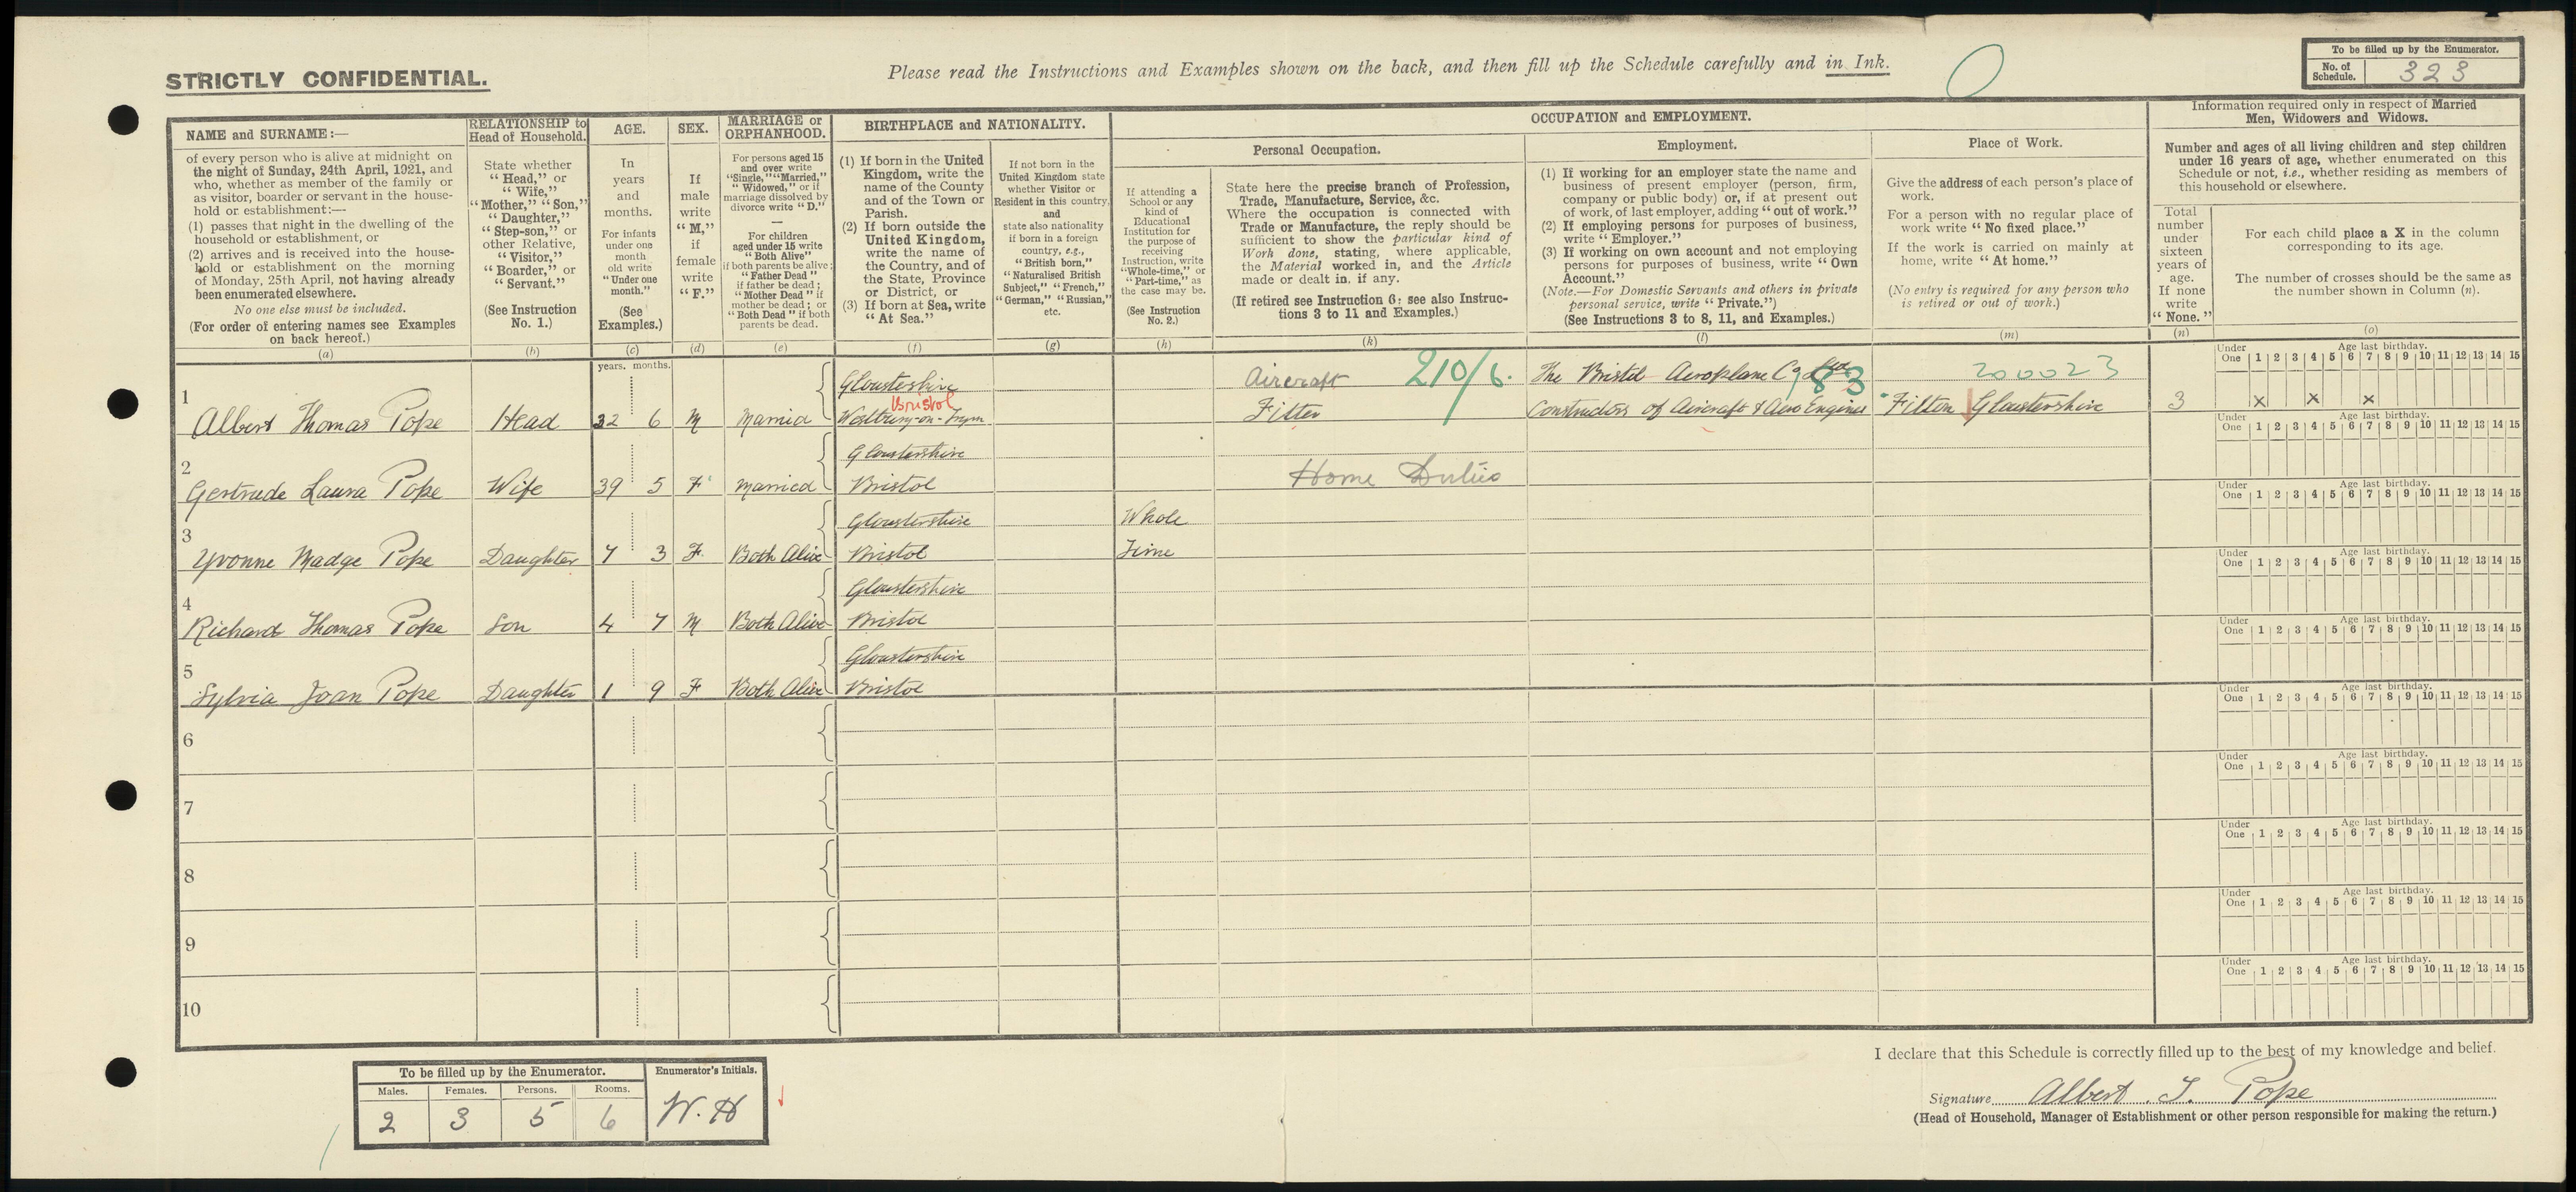 STRICTLY CONFIDENTIAL.
Please read the Instructions and Examples shown on the back, and then fill up the Schedule carefully and in Ink.
To be filled up by the Enumerator.
No. of Schedule. 323
NAME and SURNAME:—
of every person who is alive at midnight on
the night of Sunday, 24th April, 1921, and
who, whether as member of the family or
as visitor, boarder or servant in the house-
hold or establishment:—
(1) passes that night in the dwelling of the
household or establishment, or
(2) arrives and is received into the house-
hold or establishment on the morning
of Monday, 25th April, not having already
been enumerated elsewhere.
No one else must be included.
(For order of entering names see Examples
on back hereof.)
(a)
RELATIONSHIP to
Head of Household.
State whether
"Head," or
"Wife,"
"Mother," "Son,"
"Daughter,"
"Step-son," or
other Relative,
"Visitor,"
"Boarder," or
"Servant."
(See Instruction
No. 1.)
(b)
AGE.
In
years
and
months.
For infants
under one
month
old write
"Under one
month."
(See
Examples.)
(c)
SEX.
If
male
write
"M,"
if
female
write
"F."
(d)
MARRIAGE or
ORPHANHOOD.
For persons aged 15
and over write
"Single," "Married,"
"Widowed," or if
marriage dissolved by
divorce write "D."
—
For children
aged under 15 write
"Both Alive"
if both parents be alive;
"Father Dead"
if father be dead;
"Mother Dead" if
mother be dead; or
"Both Dead" if both
parents be dead.
(e)
BIRTHPLACE and NATIONALITY.
(1) If born in the United
Kingdom, write the
name of the County
and of the Town or
Parish.
(2) If born outside the
United Kingdom,
write the name of
the Country, and of
the State, Province
or District, or
(3) If born at Sea, write
"At Sea."
(f)
If not born in the
United Kingdom state
whether Visitor or
Resident in this country,
and
state also nationality
if born in a foreign
country, e.g.,
"British born,"
"Naturalised British
Subject," "French,"
"German," "Russian,"
etc.
(g)
OCCUPATION and EMPLOYMENT.
If attending a
School or any
kind of
Educational
Institution for
the purpose of
receiving
Instruction, write
"Whole-time," or
"Part-time," as
the case may be.
(See Instruction
No. 2.)
(h)
Personal Occupation.
State here the precise branch of Profession,
Trade, Manufacture, Service, &c.
Where the occupation is connected with
Trade or Manufacture, the reply should be
sufficient to show the particular kind of
Work done, stating, where applicable,
the Material worked in, and the Article
made or dealt in, if any.
(If retired see Instruction 6: see also Instruc-
tions 3 to 11 and Examples.)
(k)
Employment.
(1) If working for an employer state the name and
business of present employer (person, firm,
company or public body) or, if at present out
of work, of last employer, adding "out of work."
(2) If employing persons for purposes of business,
write "Employer."
(3) If working on own account and not employing
persons for purposes of business, write "Own
Account."
(Note.—For Domestic Servants and others in private
personal service, write "Private.")
(See Instructions 3 to 8, 11, and Examples.)
(l)
Place of Work.
Give the address of each person's place of
work.
For a person with no regular place of
work write "No fixed place."
If the work is carried on mainly at
home, write "At home."
(No entry is required for any person who
is retired or out of work.)
(m)
Information required only in respect of Married
Men, Widowers and Widows.
Number and ages of all living children and step children
under 16 years of age, whether enumerated on this
Schedule or not, i.e., whether residing as members of
this household or elsewhere.
Total
number
under
sixteen
years of
age.
If none
write
"None."
(n)
For each child place a X in the column
corresponding to its age.
The number of crosses should be the same as
the number shown in Column (n).
(o)
years. months.
Under One Age last birthday. 1 2 3 4 5 6 7 8 9 10 11 12 13 14 15
1 Gloustershire Aircraft 210/6. The Bristol Aeroplane Co Ltd 83 200023
Bristol
Albert Thomas Pope Head 32 6 M Married Westbury-on-Trym Fitter Constructors of Aircraft & Aero Engines Filton Gloustershire 3 X X X
Under One Age last birthday. 1 2 3 4 5 6 7 8 9 10 11 12 13 14 15
2 Gloustershire
Gertrude Laura Pope Wife 39 5 F Married Bristol Home Duties
Under One Age last birthday. 1 2 3 4 5 6 7 8 9 10 11 12 13 14 15
3 Gloustershire Whole
Yvonne Madge Pope Daughter 7 3 F. Both Alive Bristol Time
Under One Age last birthday. 1 2 3 4 5 6 7 8 9 10 11 12 13 14 15
4 Gloustershire
Richard Thomas Pope Son 4 7 M Both Alive Bristol
Under One Age last birthday. 1 2 3 4 5 6 7 8 9 10 11 12 13 14 15
5 Gloustershire
Sylvia Joan Pope Daughter 1 9 F Both Alive Bristol
Under One Age last birthday. 1 2 3 4 5 6 7 8 9 10 11 12 13 14 15
6
Under One Age last birthday. 1 2 3 4 5 6 7 8 9 10 11 12 13 14 15
7
Under One Age last birthday. 1 2 3 4 5 6 7 8 9 10 11 12 13 14 15
8
Under One Age last birthday. 1 2 3 4 5 6 7 8 9 10 11 12 13 14 15
9
Under One Age last birthday. 1 2 3 4 5 6 7 8 9 10 11 12 13 14 15
10
To be filled up by the Enumerator. Enumerator's Initials.
Males. Females. Persons. Rooms.
2 3 5 6 W. H
I declare that this Schedule is correctly filled up to the best of my knowledge and belief.
Signature Albert. T. Pope
(Head of Household, Manager of Establishment or other person responsible for making the return.)